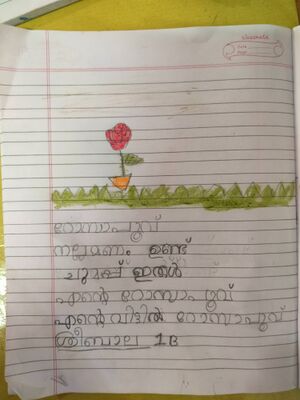 classmate
Date
Page
റോസാപൂവ്
നല്ലമണം ഉണ്ട്
ചുമപ്പ് ഇതൾ
എന്റെ റോസാപൂവ്
എന്റെ വീട്ടിൽ റോസാപൂവ്
ശ്രീബാല 1B